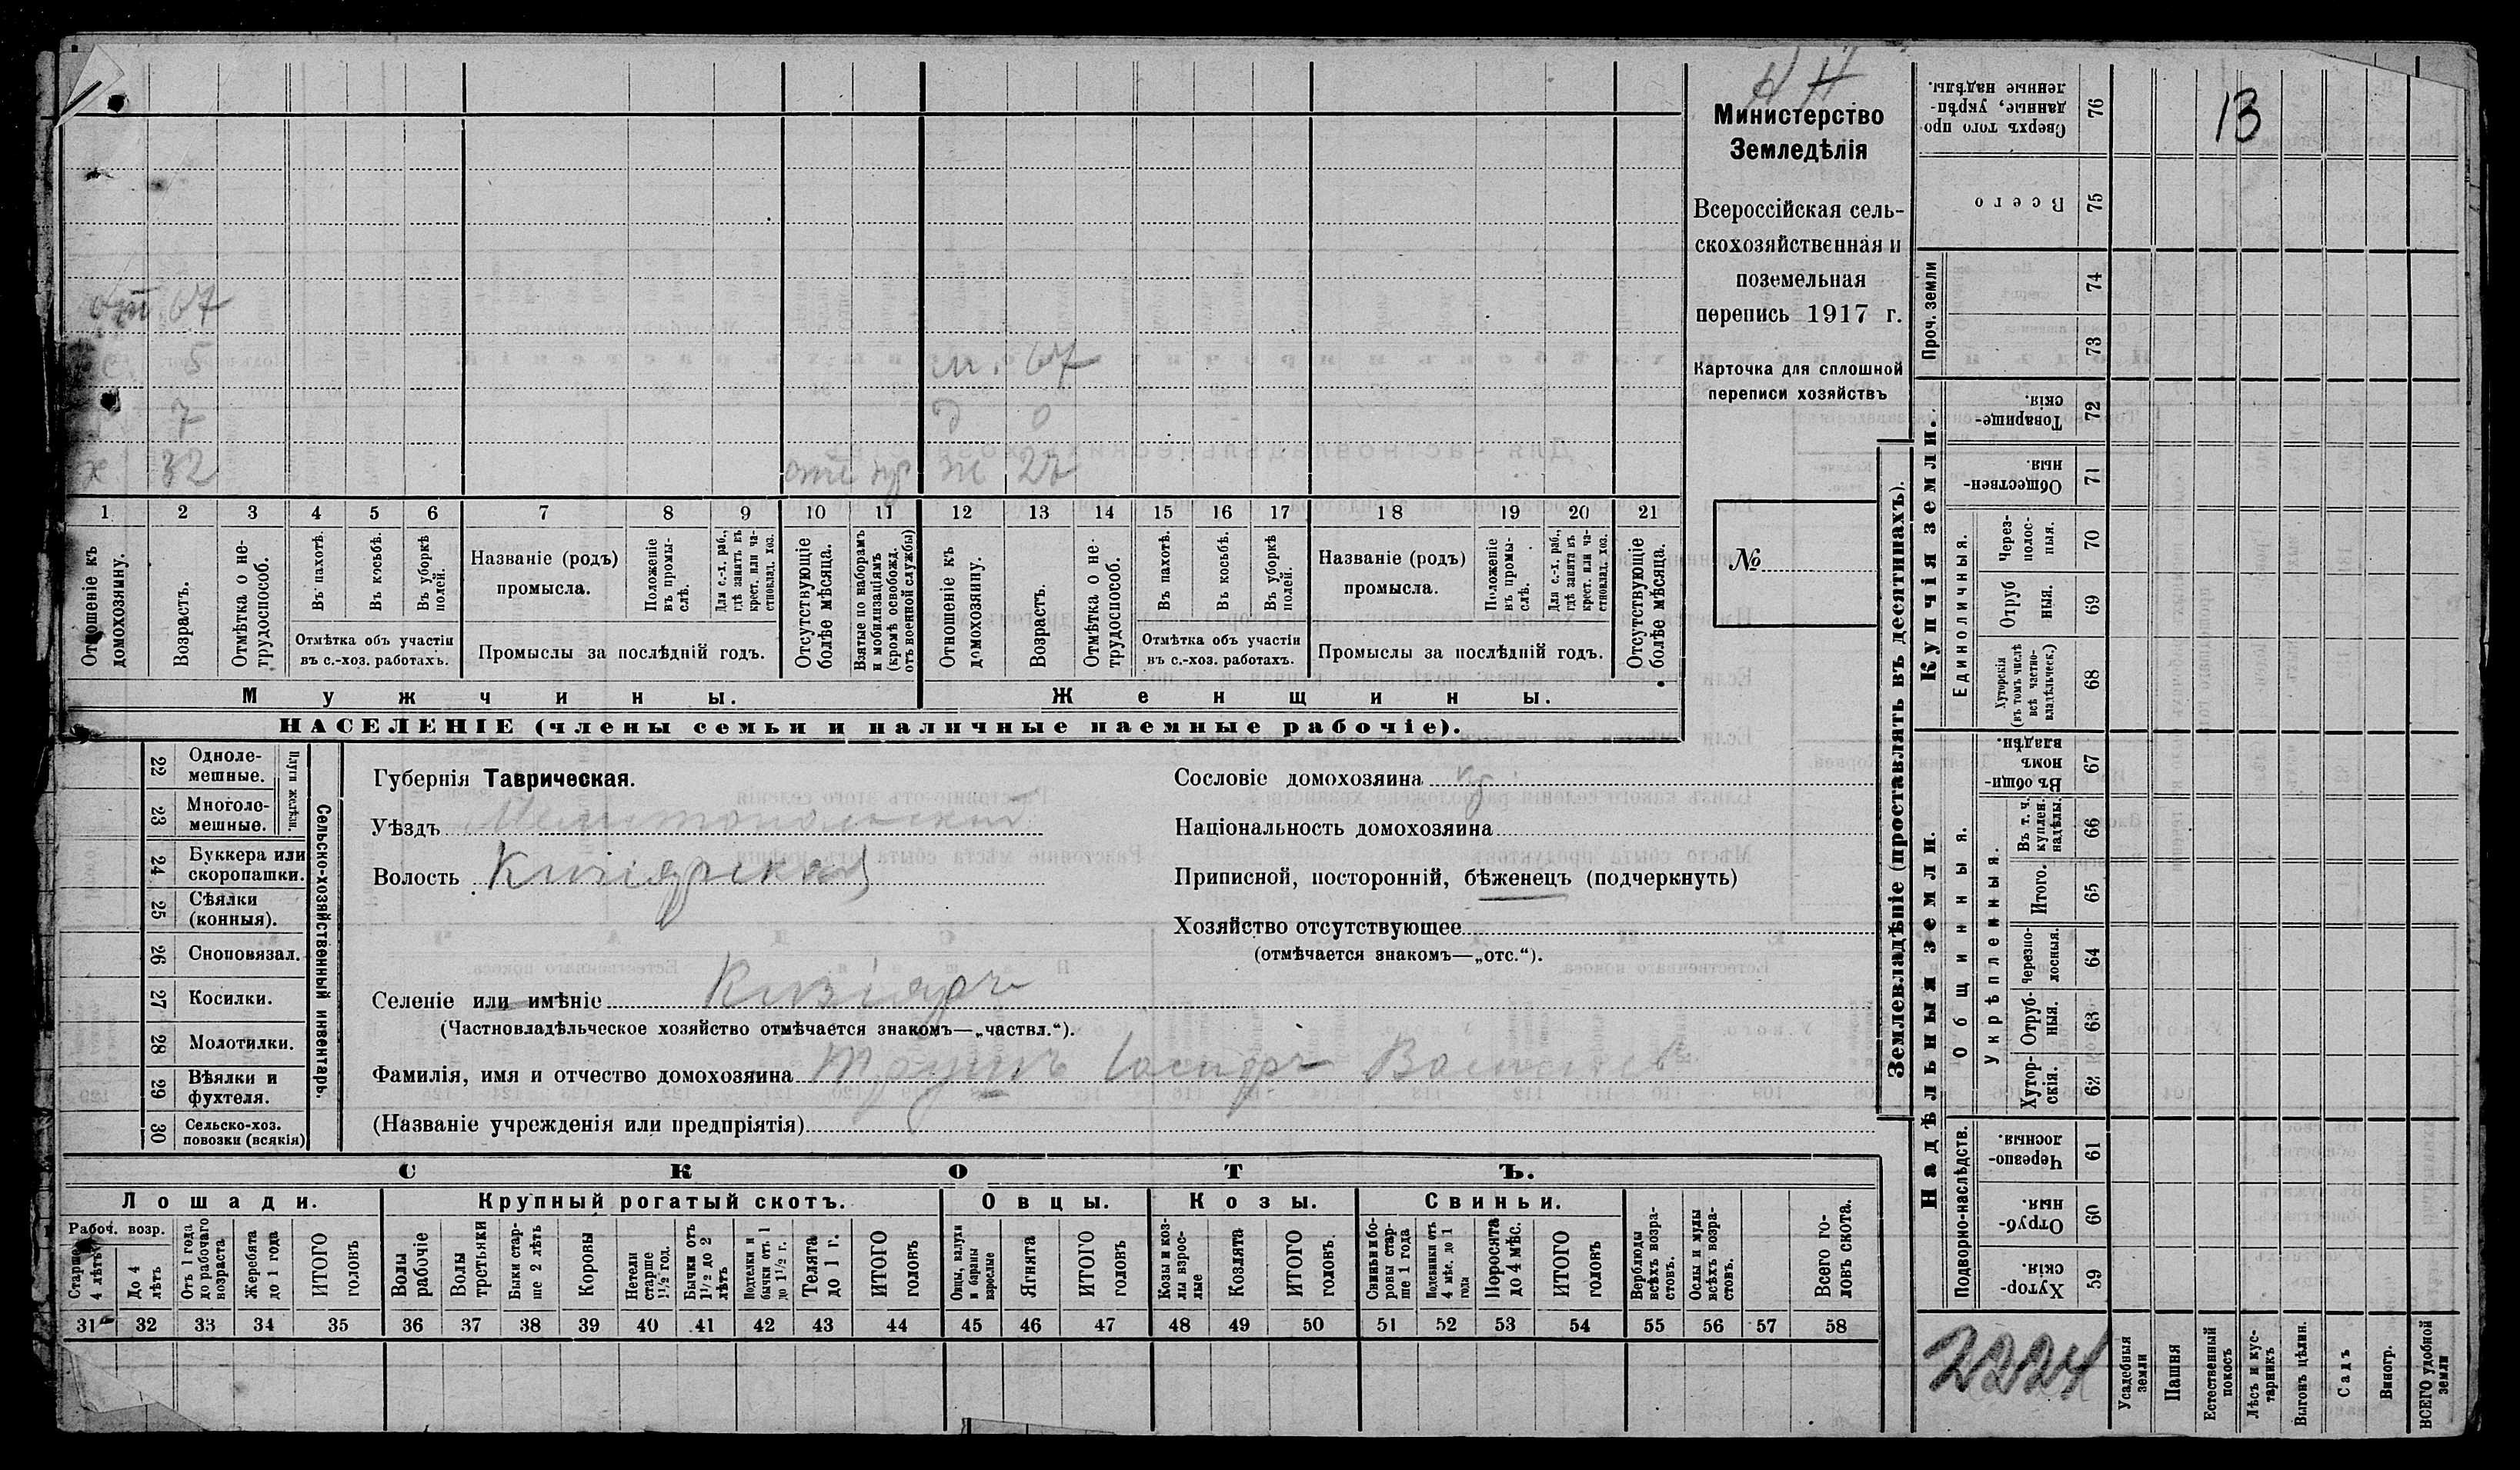 Н Н
Министерство
Земледѣлія
Всероссійская сель-
скохозяйственная и
поземельная
перепись 1917 г.
Карточка для сплошной
переписи хозяйствъ
№
13
от. 67
с. 5
7
х 32
м. 67
д 0
ж 27
1 2 3 4 5 6 7 8 9 10 11 12 13 14 15 16 17 18 19 20 21
Отношеніе къ домохозяину.
Возрастъ.
Отмѣтка о не-трудоспособ.
Въ пахотѣ.
Въ косьбѣ.
Въ уборкѣ полей.
Отмѣтка объ участіи въ с.-хоз. работахъ.
Названіе (родъ) промысла.
Положеніе въ промы-слѣ.
Для с.-х. раб., гдѣ занятъ въ крест. или ча-стновлад. хоз.
Промыслы за послѣдній годъ.
Отсутствующіе болѣе мѣсяца.
Взятые по наборамъ и мобилизаціямъ (кромѣ освобожд. отъ военной службы)
Отношеніе къ домохозяину.
Возрастъ.
Отмѣтка о не-трудоспособ.
Въ пахотѣ.
Въ косьбѣ.
Въ уборкѣ полей.
Отмѣтка объ участіи въ с.-хоз. работахъ.
Названіе (родъ) промысла.
Положеніе въ промы-слѣ.
Для с.-х. раб., гдѣ занятъ въ крест. или ча-стновлад. хоз.
Промыслы за послѣдній годъ.
Отсутствующіе болѣе мѣсяца.
Мужчины.
Женщины.
НАСЕЛЕНІЕ (члены семьи и наличные наемные рабочіе).
22 Одноле-мешные.
23 Многоле-мешные.
Плуги желѣзн.
24 Буккера или скоропашки.
25 Сѣялки (конныя).
26 Сноповязал.
27 Косилки.
28 Молотилки.
29 Вѣялки и фухтеля.
30 Сельско-хоз. повозки (всякія)
Сельско-хозяйственный инвентарь.
Губернія Таврическая.
Уѣздъ Мелитопольский
Волость Кизиярская
Сословіе домохозяина кр.
Національность домохозяина
Приписной, посторонній, бѣженецъ (подчеркнуть)
Хозяйство отсутствующее
(отмѣчается знакомъ—„отс.“).
Селеніе или имѣніе Кизіяръ
(Частновладѣльческое хозяйство отмѣчается знакомъ—„частвл.“).
Фамилія, имя и отчество домохозяина Іосифъ
(Названіе учрежденія или предпріятія)
СКОТЪ.
Лошади.
Крупный рогатый скотъ.
Овцы.
Козы.
Свиньи.
Рабоч. возр.
Старше 4 лѣтъ
До 4 лѣтъ
Отъ 1 года до рабочаго возраста
Жеребята до 1 года
ИТОГО головъ
Волы рабочіе
Волы третьяки
Быки стар-ше 2 лѣтъ
Коровы
Нетели старше 1½ год.
Бычки отъ 1½ до 2 лѣтъ
Подтелки и бычки отъ 1 до 1½ г.
Телята до 1 г.
ИТОГО головъ
Овцы, валухи и бараны взрослые
Ягнята
ИТОГО головъ
Козы и коз-лы взрос-лые
Козлята
ИТОГО головъ.
Свиньи и бо-ровы стар-ше 1 года
Подсвинки отъ 4 мѣс. до 1 года
Поросята до 4 мѣс.
ИТОГО головъ
Верблюды всѣхъ возра-стовъ.
Ослы и мулы всѣхъ возра-стовъ.
Всего го-ловъ скота.
31 32 33 34 35 36 37 38 39 40 41 42 43 44 45 46 47 48 49 50 51 52 53 54 55 56 57 58
Землевладѣніе (проставлять въ десятинахъ).
Сверхъ того про-данные, укрѣп-ленные надѣлы. 76
Всего 75
Проч. земли
74
73
Купчія земли.
Товарище-скія. 72
Обществен-ныя. 71
Единоличныя.
Через-полос-ныя. 70
Отруб-ныя. 69
Хуторскія (въ томъ числѣ всѣ частно-владѣльческ.) 68
Надѣльныя земли.
Общинныя.
Въ общин-номъ владѣн. 67
Укрѣпленныя.
Въ т. ч. куплен. надѣлы. 66
Итого. 65
Черезпо-лосныя. 64
Отруб-ныя. 63
Хутор-скія. 62
Подворно-наслѣдств.
Черезпо-лосныя. 61
Отруб-ныя. 60
Хутор-скія. 59
2224
Усадебныя земли
Пашня
Естественный покосъ
Лѣсъ и кус-тарникъ
Выгонъ цѣлин.
Садъ
Виногр.
ВСЕГО удобной земли